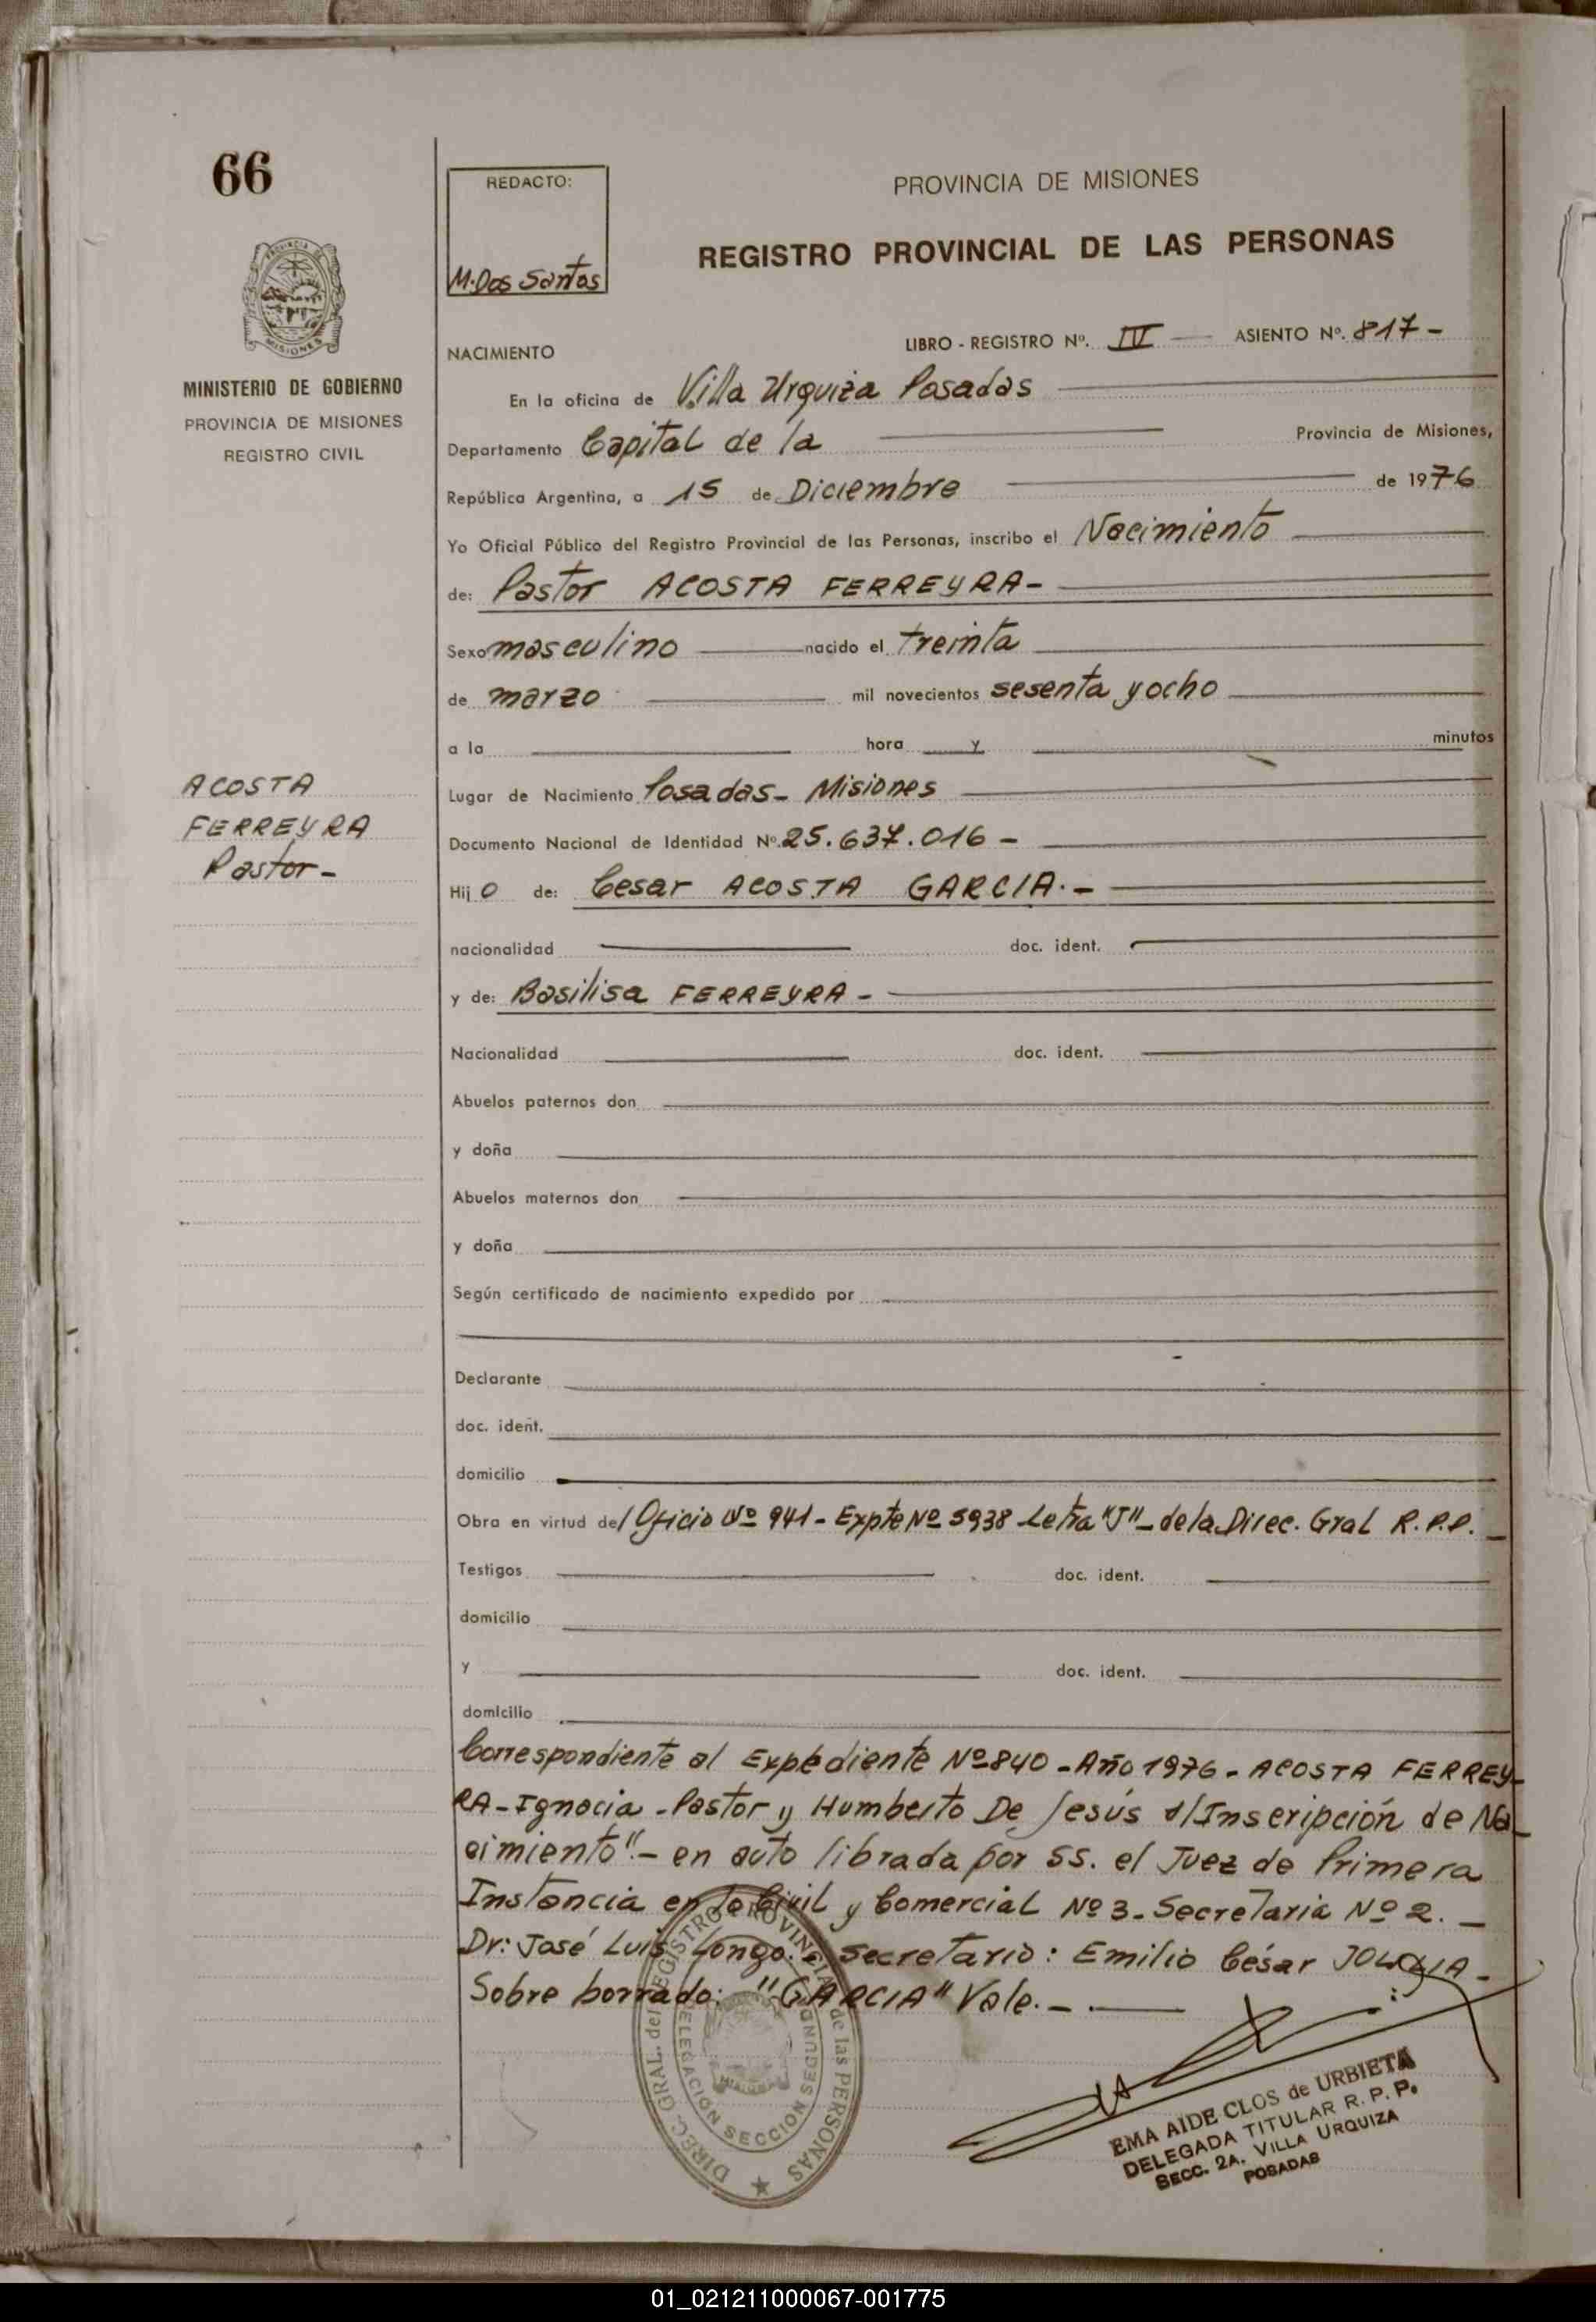 66
REDACTO:
M. Dos Santos
PROVINCIA DE MISIONES
REGISTRO PROVINCIAL DE LAS PERSONAS
PROVINCIA
MISIONES
MINISTERIO DE GOBIERNO
PROVINCIA DE MISIONES
REGISTRO CIVIL
NACIMIENTO
LIBRO - REGISTRO Nº. IV — ASIENTO Nº. 817 -
En la oficina de Villa Urquiza Posadas
Departamento Capital de la Provincia de Misiones,
República Argentina, a 15 de Diciembre de 1976
Yo Oficial Público del Registro Provincial de las Personas, inscribo el Nacimiento
de: Pastor ACOSTA FERREYRA -
Sexo masculino nacido el treinta
de marzo mil novecientos sesenta y ocho
a la hora y minutos
ACOSTA
FERREYRA
Pastor -
Lugar de Nacimiento Posadas - Misiones
Documento Nacional de Identidad Nº. 25.637.016 -
Hij o de: Cesar ACOSTA GARCIA. -
nacionalidad doc. ident.
y de: Basilisa FERREYRA -
Nacionalidad doc. ident.
Abuelos paternos don
y doña
Abuelos maternos don
y doña
Según certificado de nacimiento expedido por
Declarante
doc. ident.
domicilio
Obra en virtud del Oficio Nº 941 - Expte Nº 5938 Letra "J" - de la Direc. Gral R.P.P. -
Testigos doc. ident.
domicilio
y doc. ident.
domicilio
Correspondiente al Expediente Nº 840 - Año 1976 - ACOSTA FERREY-
RA - Ignacia - Pastor y Humberto De Jesús s/Inscripción de Na-
cimiento". - en auto librada por SS. el Juez de Primera
Instancia en lo Civil y Comercial Nº 3 - Secretaria Nº 2. -
Dr: José Luis Longo. - Secretario: Emilio César -
Sobre borrado: "GARCIA" Vale. -
DIREC. GRAL. del REGISTRO PROVINCIAL de las PERSONAS
DELEGACION SECCION SEGUNDA
EMA AIDE CLOS de URBIETA
DELEGADA TITULAR R. P. P.
SECC. 2A. VILLA URQUIZA
POSADAS
01_021211000067-001775